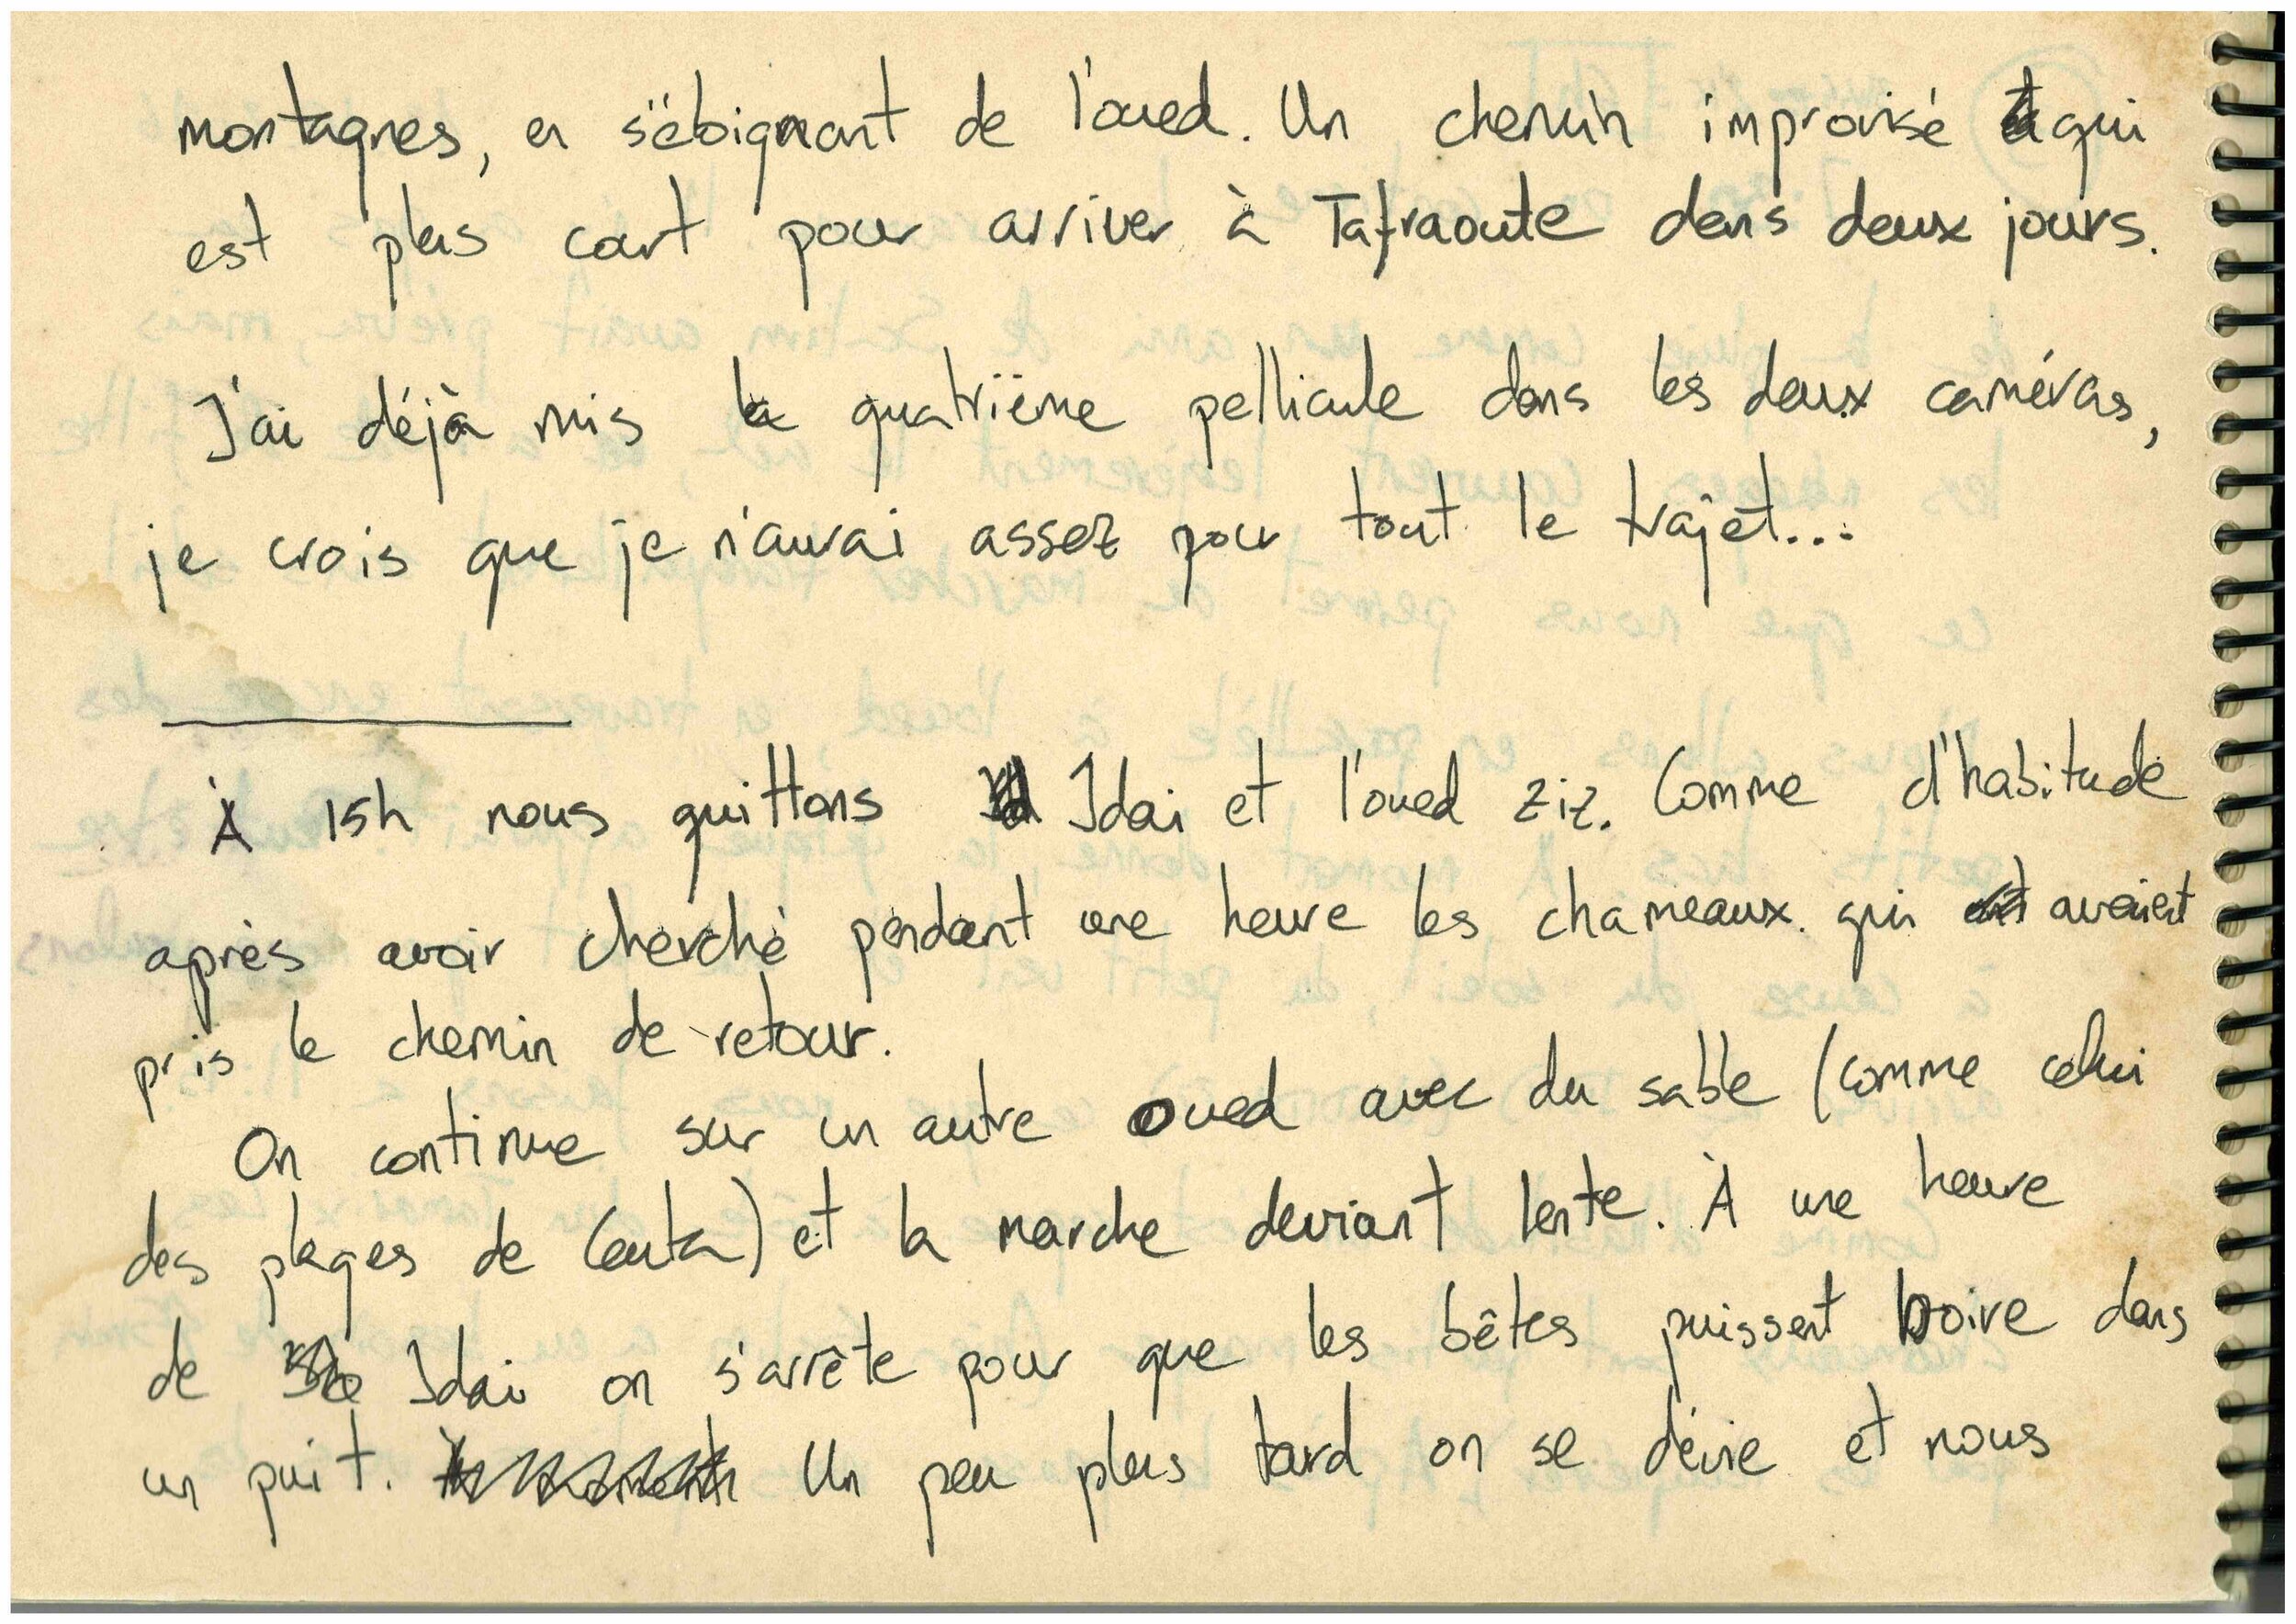 montagnes, en s'éloignant de l'oued. Un chemin improvisé qui
est plus court pour arriver à Tafraoute dans deux jours.
J'ai déjà mis la quatrième pellicule dans les deux caméras,
je crois que je n'aurai assez pour tout le trajet...
À 15h nous quittons Idai et l'oued ziz. Comme d'habitude
après avoir cherché pendant une heure les chameaux qui avaient
pris le chemin de retour.
On continue sur un autre oued avec du sable (comme celui
des plages de Ceuta) et la marche deviant lente. À une heure
de Idai on s'arrête pour que les bêtes puissent boire dans
un puit. Un peu plus tard on se dévie et nous